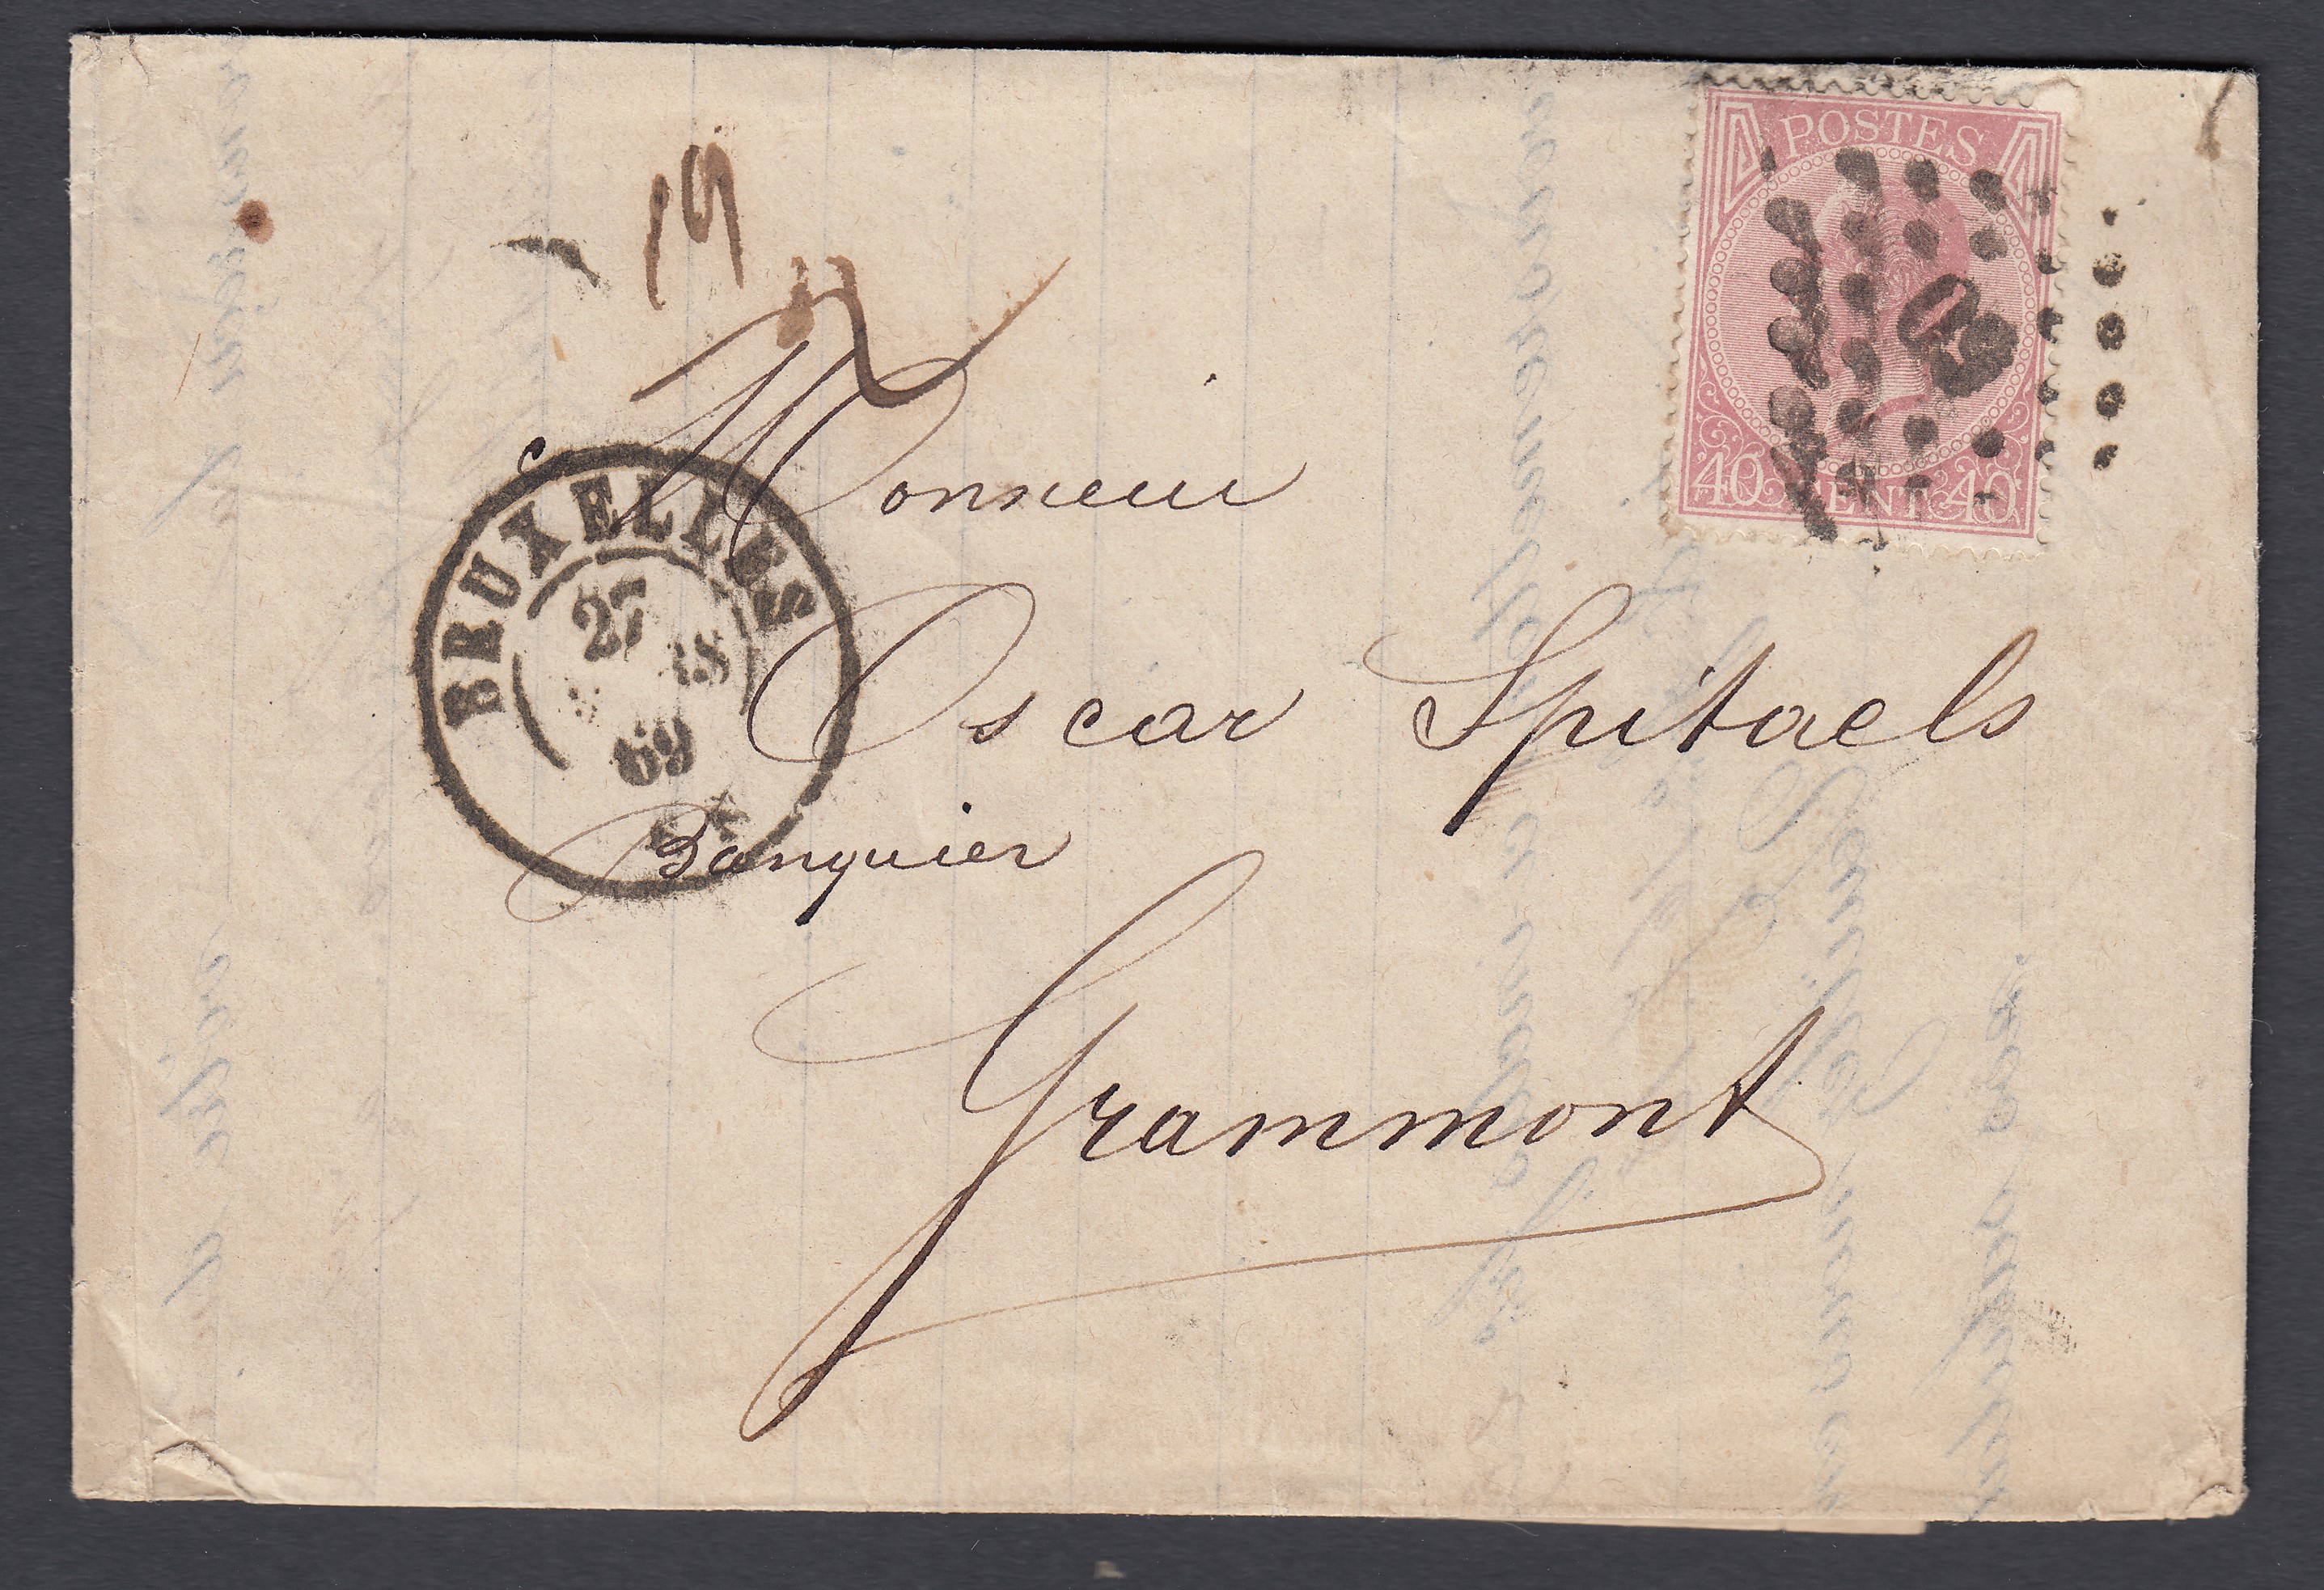 POSTES
60
40 CENT 40
19
Monsieur
BRUXELLES
27
69
Oscar Spitaels
Banquier
Grammont